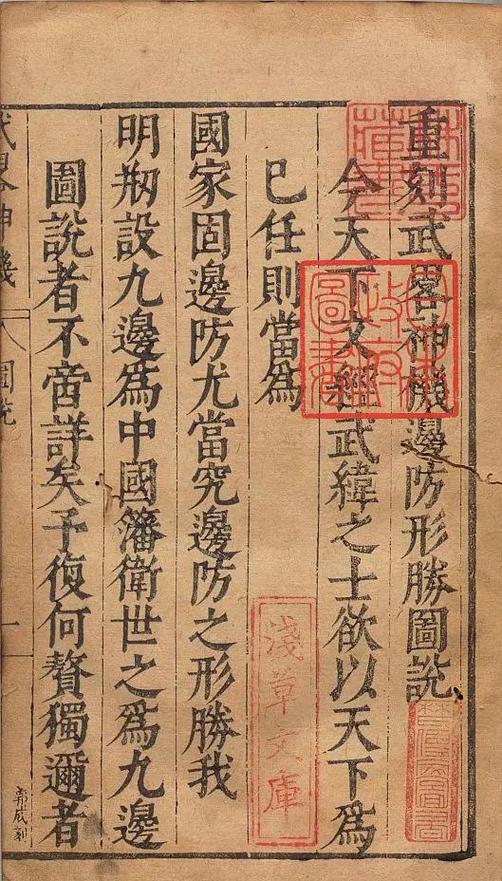 重刻武畧神機邊防形勝圖說
今天下文經武緯之士欲以天下爲
已任則當爲
國家固邊防尤當究邊防之形勝我
明剏設九邊爲中國籓衛世之爲九邊
圖說者不啻詳矣予復何贅獨邇者
武畧神機
圖說
一
淺草文庫